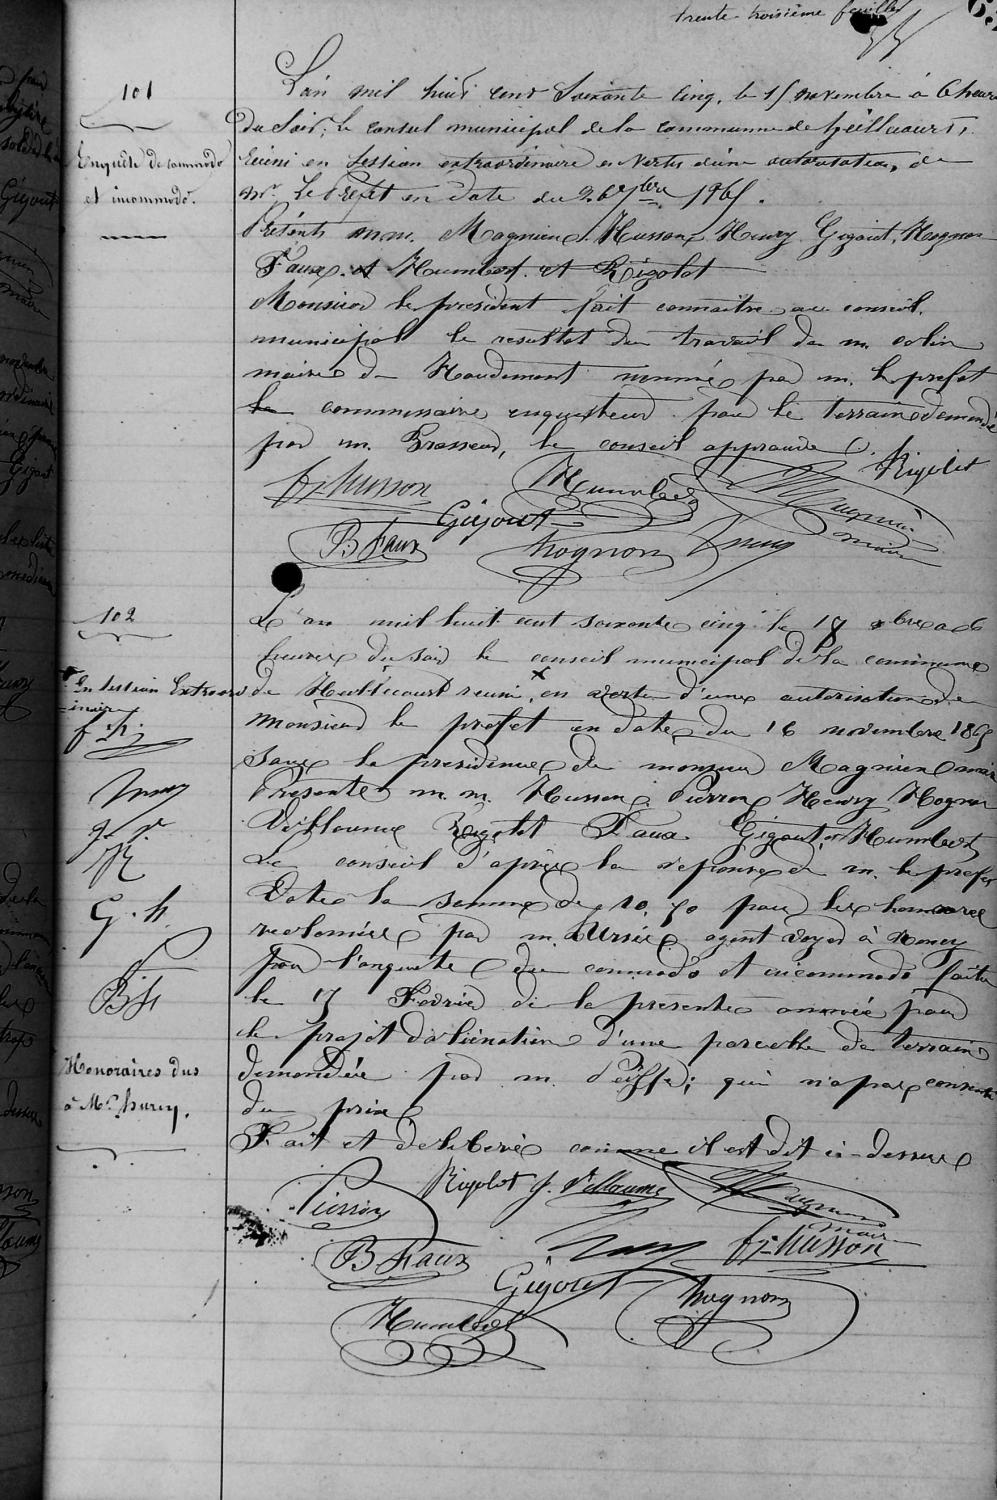 trente-troisième feuillet
101
Enquête de commodo
et incommodo.
L'an mil huit cent soixante cinq, le 15 novembre à 6 heures
du soir, le conseil municipal de la commune de heillecourt,
Réuni en session extraordinaire en vertu d'une autorisation, de
Mr. Le Préfet en date du 26 7bre 1865.
Présents mm. Magnien, Husson, Henry Gigout, Hognon
Faux, et Humbert. et Rigolot
Monsieur le president fait connaitre au conseil
municipal le resultat du travail de m. colin
maire de Houdemont nommé par m. le prefet
le commissaire enquêteur pour le terrain demandé
par m. Brasseur, le conseil approuve.
Rigolot
fx husson Humbert Magnien
maire
Gigout
B Faux hognon henry
102
L'an mil huit cent soixante cinq le 18 xbre a 6
heures du soir le conseil municipal de la commune
de Heillecourt reuni x en vertu d'une autorisation de
x En session Extraord
inaire
Monsieur le prefet en date du 16 novembre 1865
Sous la presidence de monsieur Magnien maire
Presents m. m. Husson, Pierron, Henry Hognon
Villaume Rigolot Faux Gigout, et Humbert
Le conseil d'après la reponse de m. le prefet
Vote la somme de 10,70 pour les honoraires
reclamées par m. agent voyer à Nancy
pour l'enquête de commodo et incommodo faite
le 17 Fevrier de la presente année pour
le projet d'alienation d'une parcelle de terrain
demandée par m. ; qui n'a pas consenti
du prix
Fait et deliberé comme il est dit ci-dessus
f. h.
henry
R
G. h.
B f
Honoraires dus
à Mr. hurcy.
Pierron Rigolot J. Villaume Magnien
maire
B Faux henry fx husson
Gigout hognon
Humbert